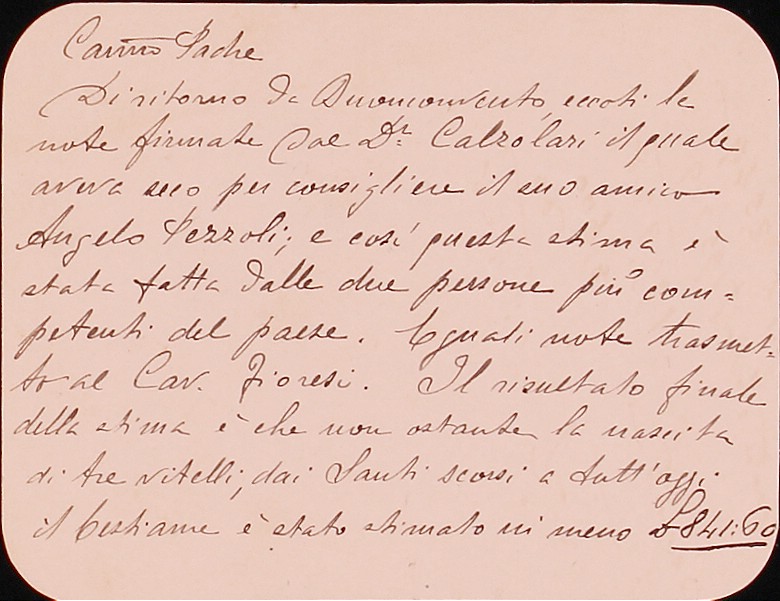 Carmo Padre
Di ritorno da Buonconvento, eccoti le
note firmate dal Dr. Calzolari il quale
aveva seco per consigliere il suo amico
Angelo Pezzoli; e così questa stima è
stata fatta dalle due persone più com=
petenti del paese. Eguali note trasmet=
to al Cav. Fioresi. Il risultato finale
della stima è che non ostante la nascita
di tre vitelli, dai Santi scorsi a tutt'oggi
il bestiame è stato stimato in meno £841:60